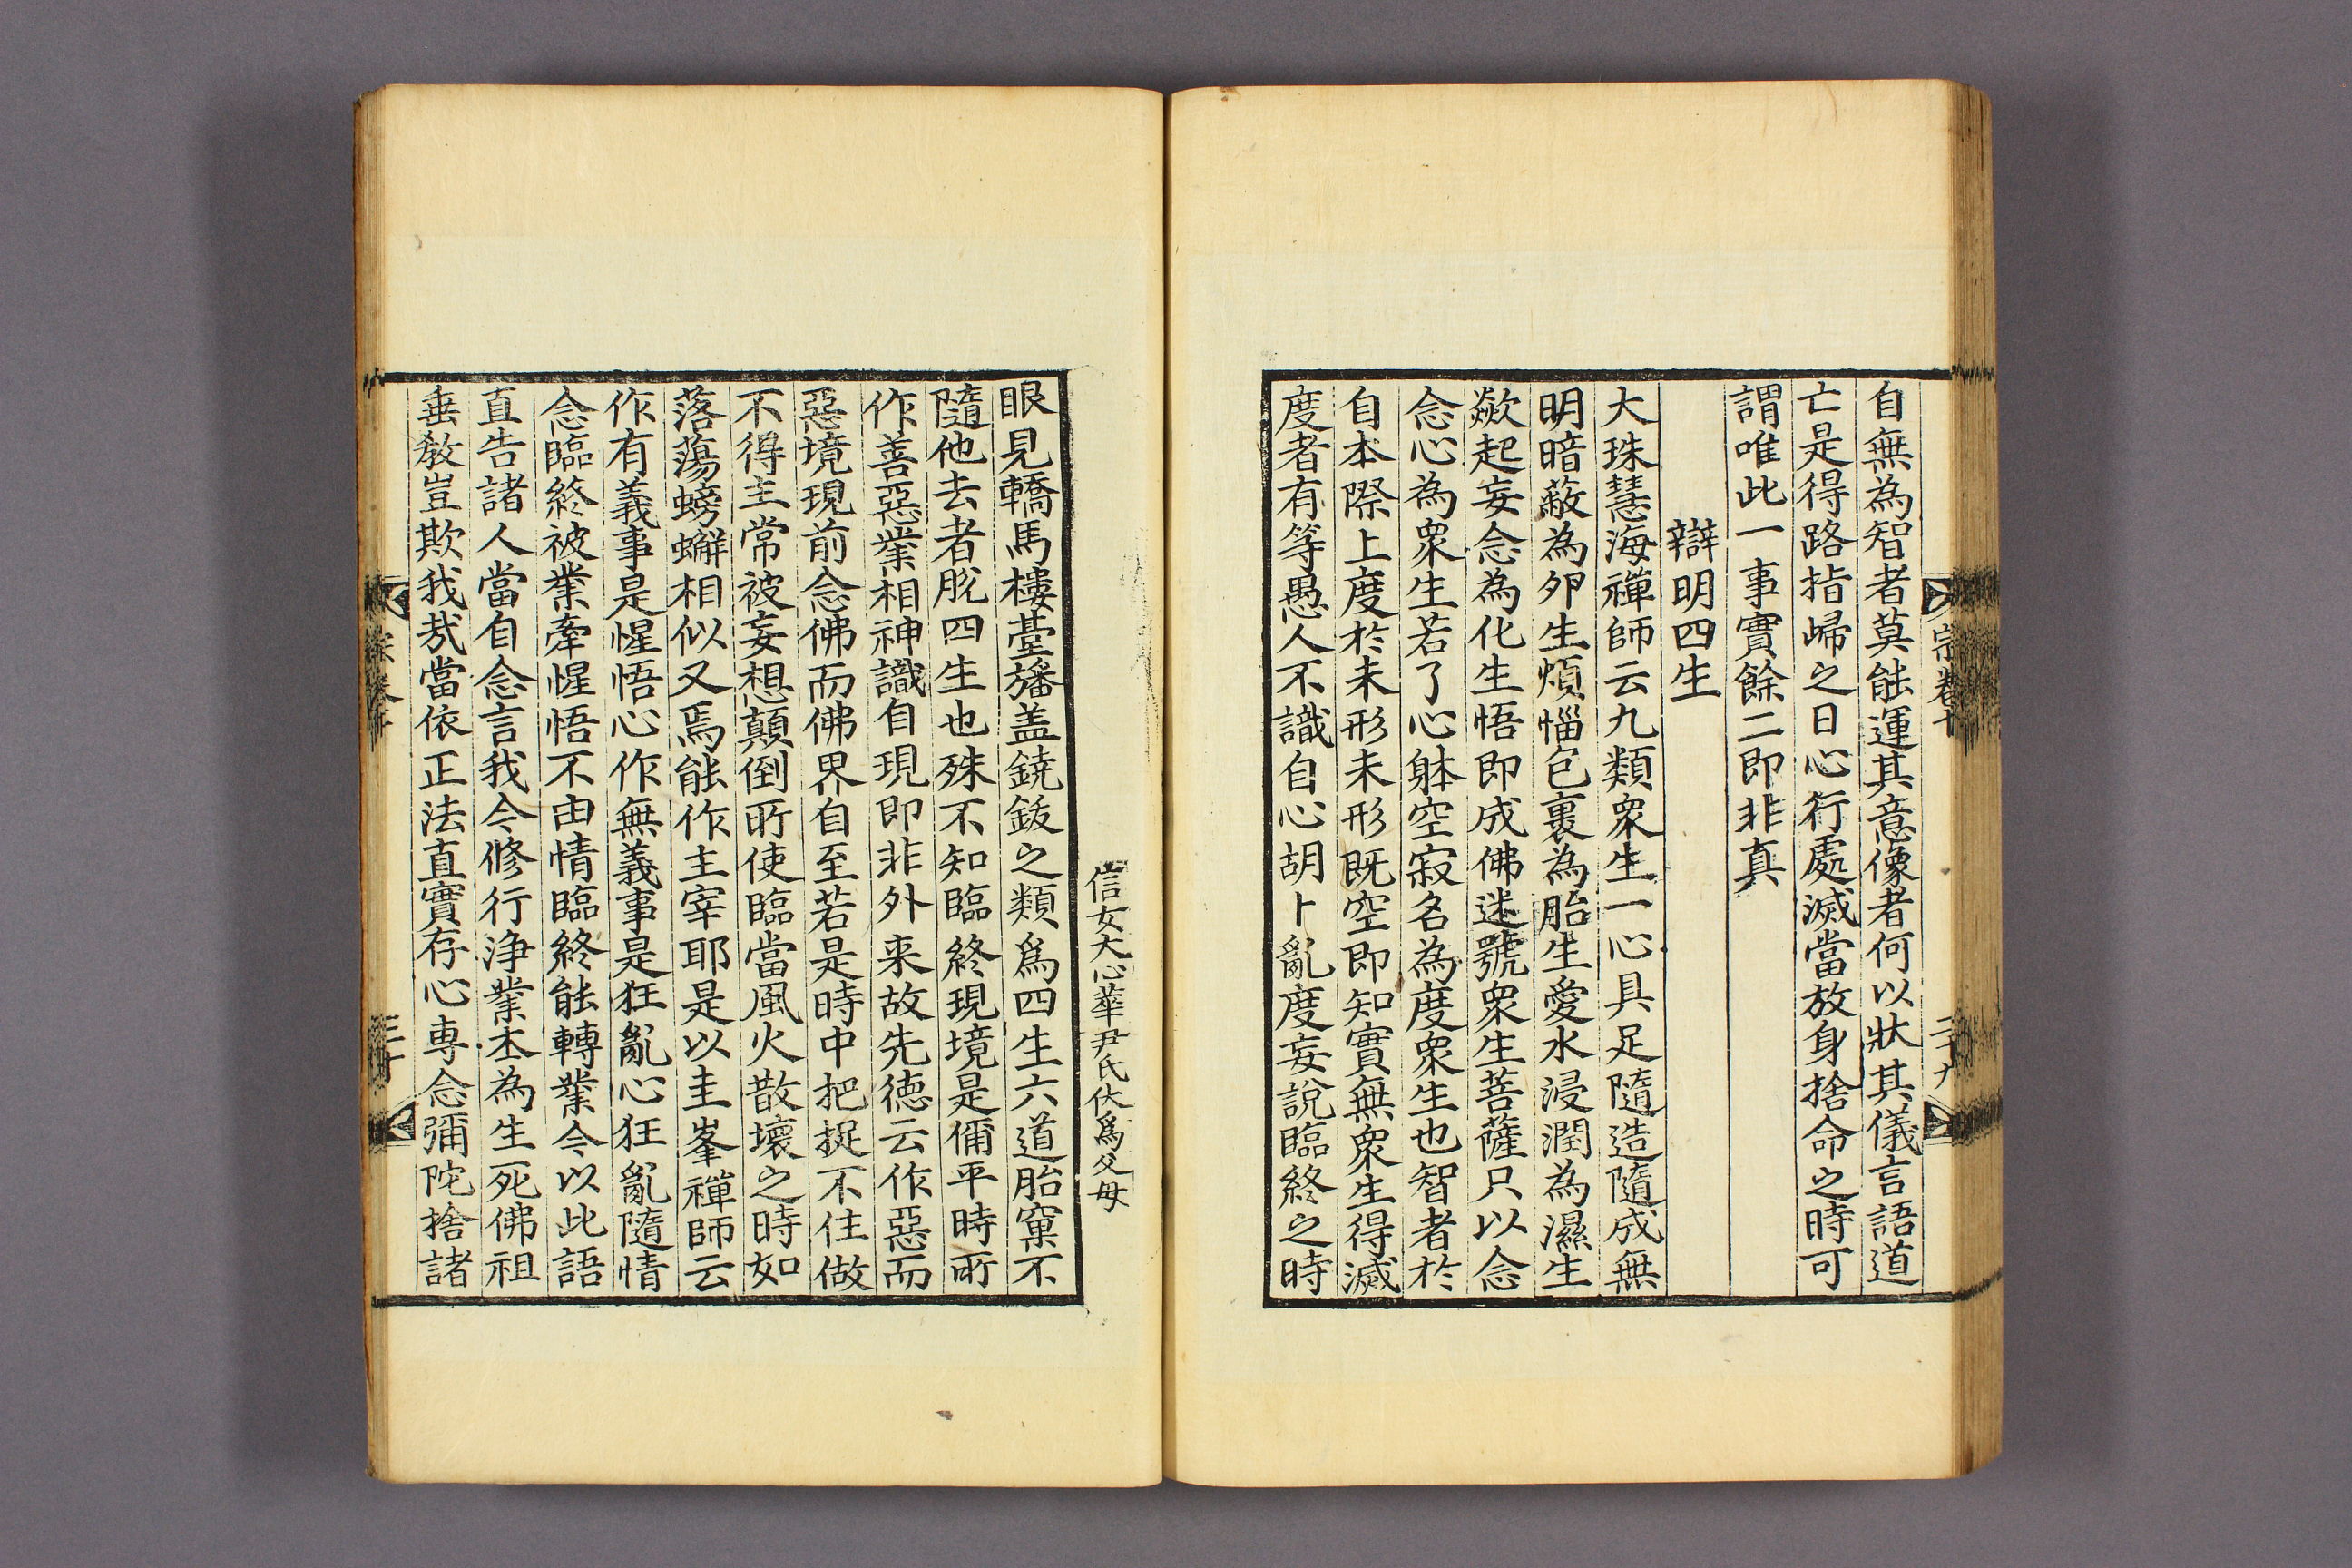 宗卷十
二十九
自無為智者莫能運其意像者何以狀其儀言語道
亡是得路指歸之日心行處滅當放身捨命之時可
謂唯此一事實餘二即非真
辯明四生
大珠慧海禪師云九類衆生一心具足隨造隨成無
明暗蔽為卵生煩惱包裹為胎生愛水浸潤為濕生
歘起妄念為化生悟即成佛迷號衆生菩薩只以念
念心為衆生若了心躰空寂名為度衆生也智者於
自本際上度於未形未形既空即知實無衆生得滅
度者有等愚人不識自心胡卜亂度妄說臨終之時
信女大心華尹氏伏爲父母
眼見轎馬樓臺旛盖鐃鈸之類爲四生六道胎窠不
隨他去者脫四生也殊不知臨終現境是伂平時所
作善惡業相神識自現即非外来故先德云作惡而
惡境現前念佛而佛界自至若是時中把捉不住做
不得主常被妄想顛倒所使臨當風火散壞之時如
落蕩螃蠏相似又焉能作主宰耶是以圭峯禪師云
作有義事是惺悟心作無義事是狂亂心狂亂隨情
念臨終被業牽惺悟不由情臨終能轉業今以此語
直告諸人當自念言我今修行净業本為生死佛祖
垂教豈欺我㢤當依正法直實存心專念彌陀捨諸
三十